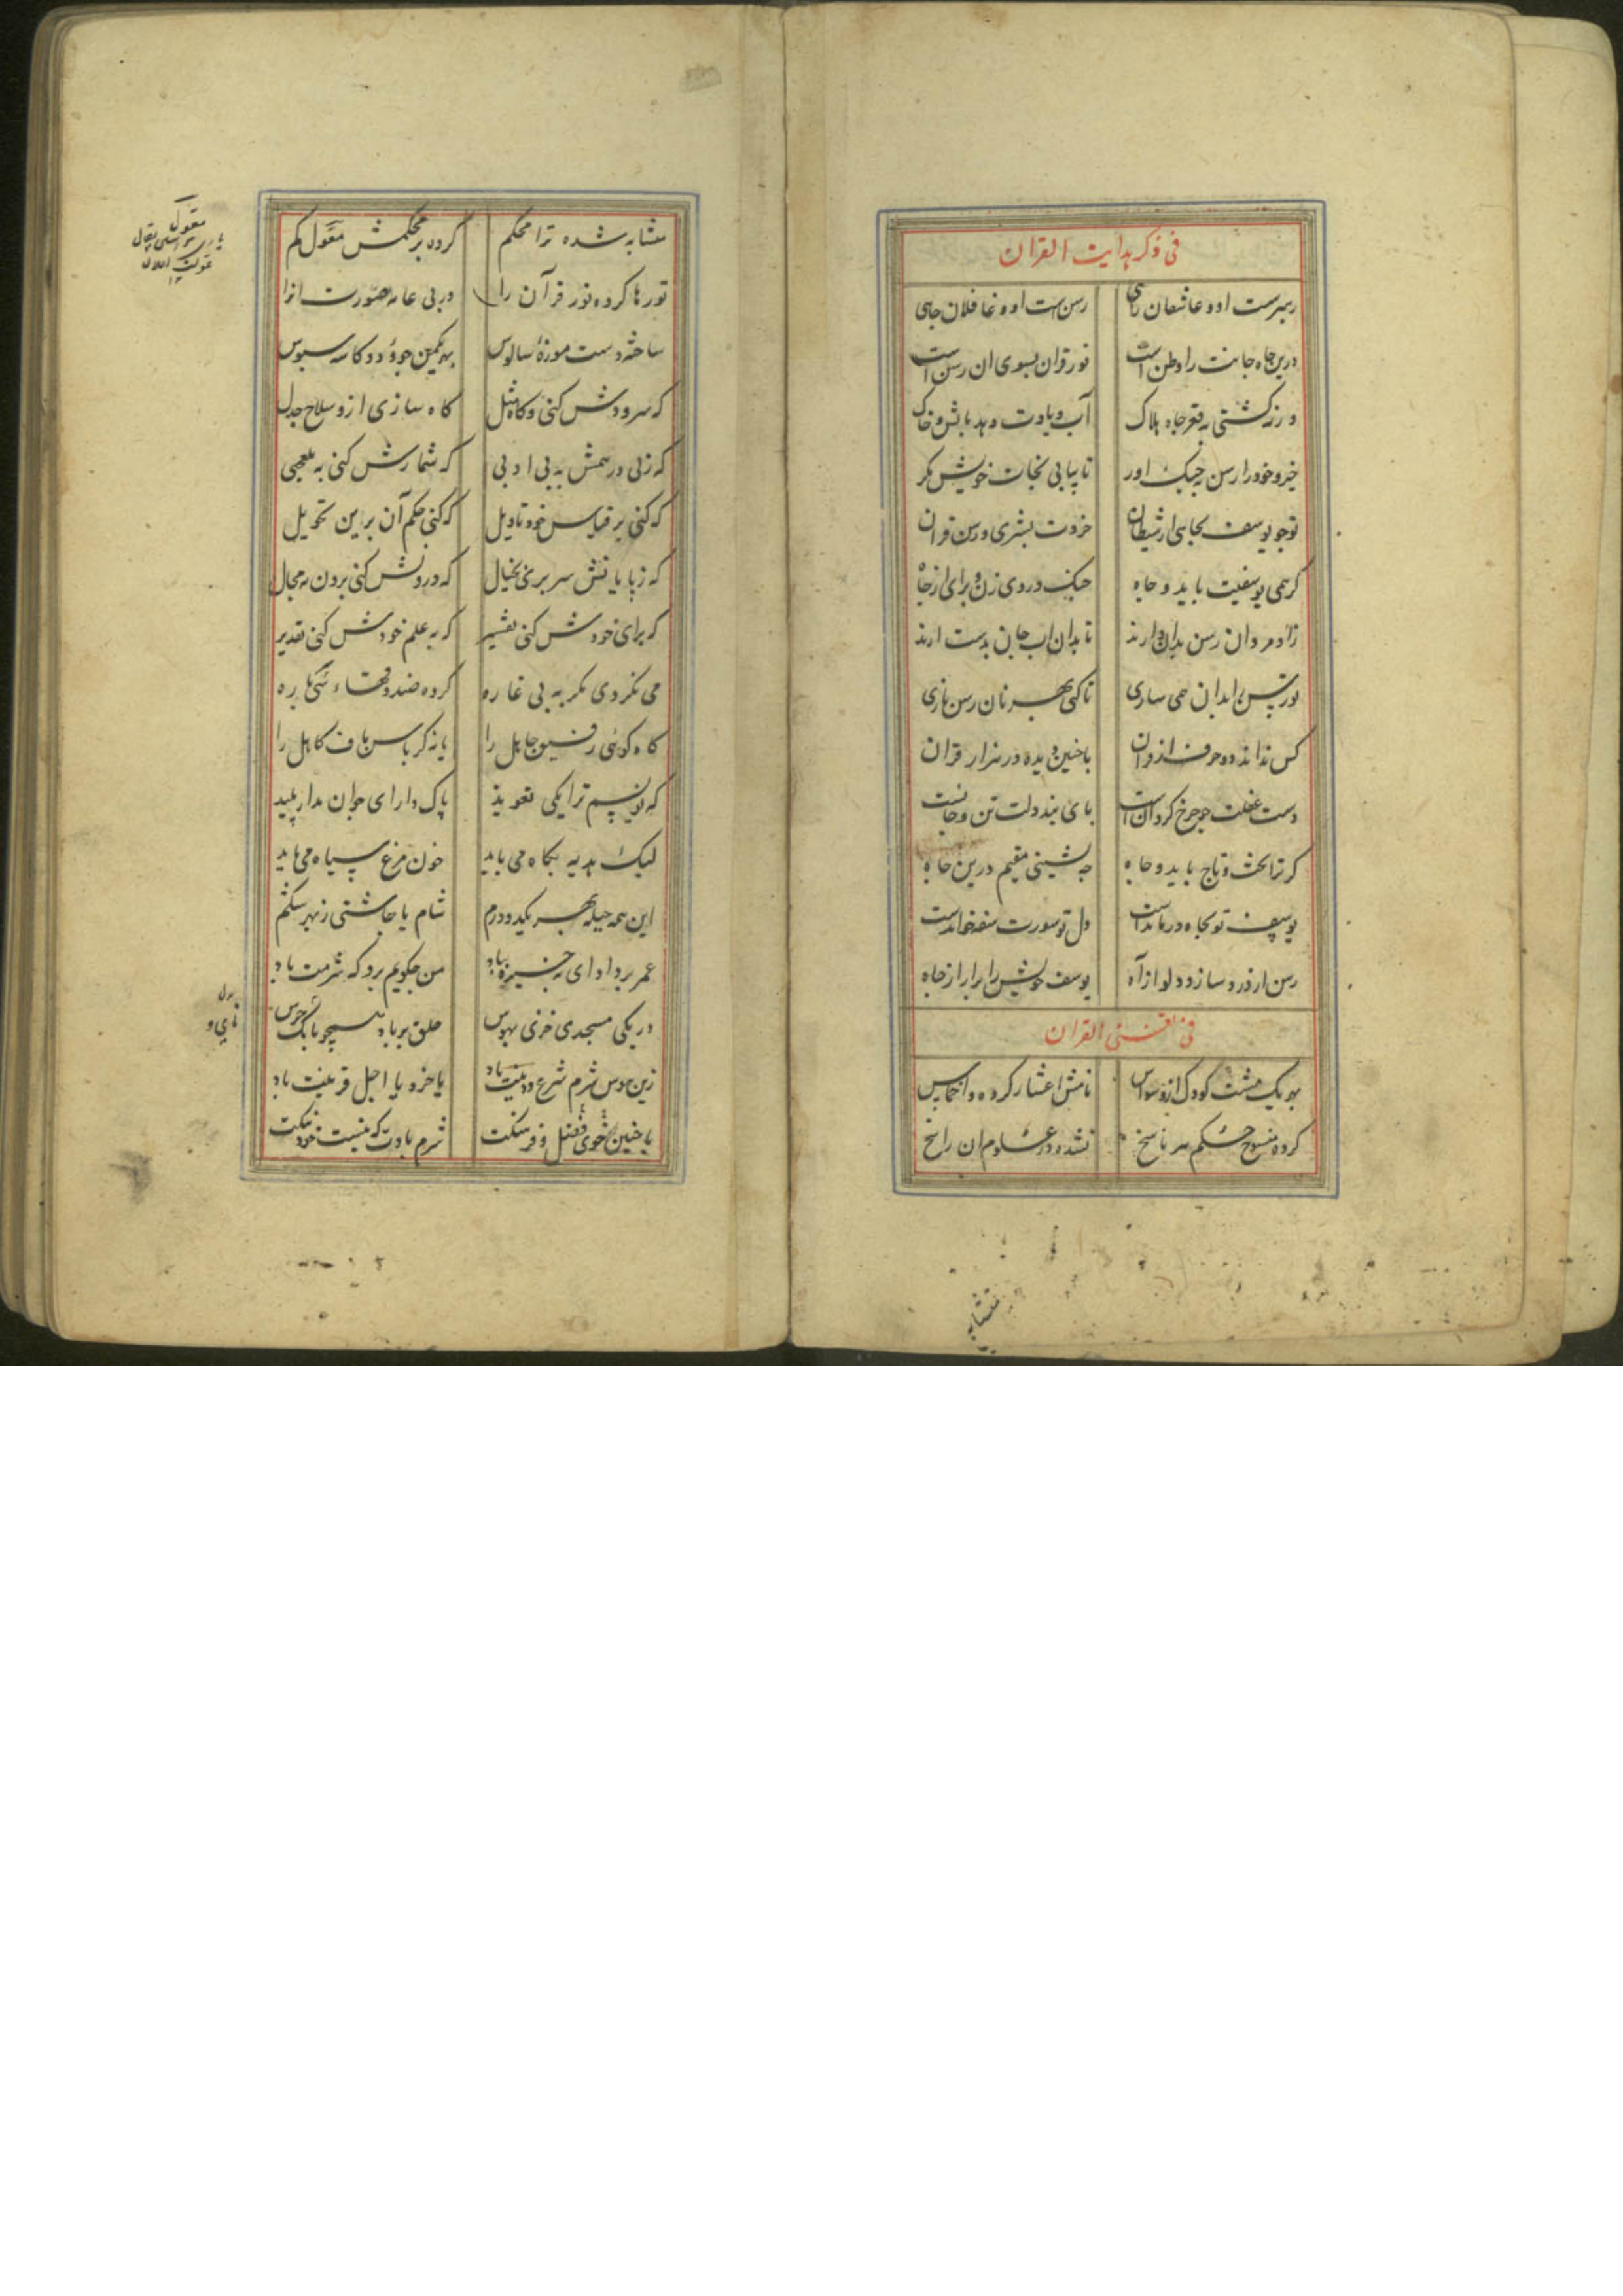 فی ذکر هدایت القران
رهبرست او و عاشقان راهی رسن است او و غافلان چاهی
درین چاه جانت را وطن است نور قران بسوی ان رسن است
ورنه گشتی به قعر چاه هلاک آب و بادت دهد بآتش و خاک
خیز و خود را رسن به چنگ اور تا بیابی نجات خویش مگر
تو چو یوسف بچاهی از شیطان خردت بشری و رسن قران
گر همی یوسفیت باید و جاه چنگ در وی زن و برای از چاه
رادمردان رسن بدان دارند تا بدان اب جان بدست ارند
تو رسن را بدان همی سازی تا کنی بهر نان رسن بازی
کس نداند دو حرف از قران با چنین دیده در هزار قران
دست عقلت چو چرخ گردان است پای بند دلت تن و جانست
گر ترا تخت و تاج باید و جاه چه نشینی مقیم درین چاه
یوسف تو بچاه درمانداست دل تو سورت سفه خوانداست
رسن از درد ساز و دلو از آه یوسف خویش را برار از چاه
فی القران
بهر یک مشت کودک از وسواس نامش اعشار کرده و اخماس
کرده منسوخ حکم هر ناسخ نشده در علوم ان راسخ
متشابه
متشابه شده ترا محکم کرده بر محکمش معول کم
تو رها کرده نور قرآن را در پی عامه صورت انرا
ساخته دست موزهٔ سالوس بهر یکمن جو و دو کاسه سبوس
که سرودش کنی و گاه مثل گاه سازی ازو سلاح جدل
که زنی در همش به بی ادبی که شمارش کنی به بلعجبی
که کنی بر قیاس خود تاویل که کنی حکم آن برین تحویل
که ز پایانش سر بری بخیال که درونش کنی برون به محال
که برای خودش کنی تفسیر که به علم خودش کنی تقدیر
می نگردی مگر به بی غاره کرده صد
گاه گوئی رفیق جاهل را یا نه کرباس باف کاهل را
که نویسم ترا یکی تعویذ پاک دار ای جوان مدار پلید
لیک هدیه بگاه می باید خون مرغ سیاه می باید
این همه حیله بهر یکدو درم شام یا چاشتی ز بهر شکم
عمر بر داد ای من چگویم برو که شرمت باد
در یکی مسجدی خزی بهوس حلق پر باد همچو بانگ جرس
زین هوس شرم شرع و دینت باد یا خرد یا اجل قرینت باد
با چنین خوی فضل و فرهنگت شرم بادت که نیست خود ننگت
معول
نای و